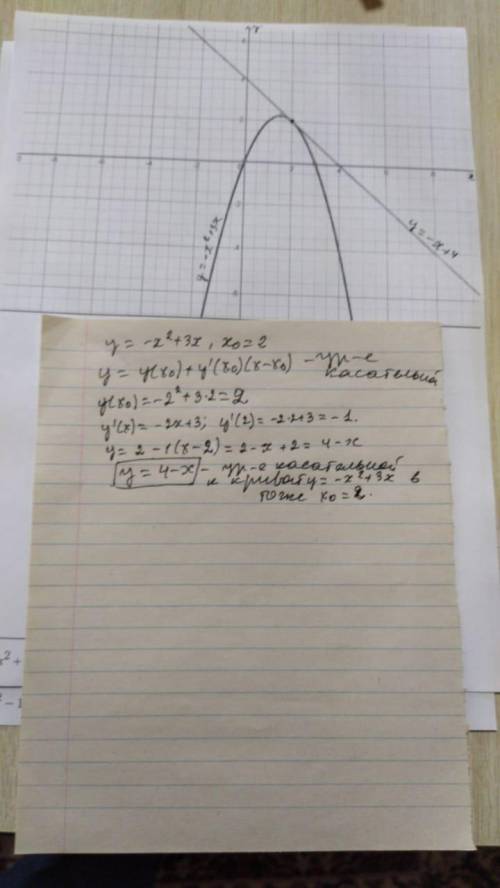 y
x
y = -x²+3x
y = -x+4
y = -x²+3x, x₀=2
y = y(x₀)+y'(x₀)(x-x₀) - ур-е
касательной
y(x₀)=-2²+3·2=2
y'(x)=-2x+3; y'(2)=-2·2+3=-1.
y=2-1(x-2)=2-x+2=4-x
y=4-x - ур-е касательной
к кривой y=-x²+3x в
точке x₀=2.
x² +
² - 1